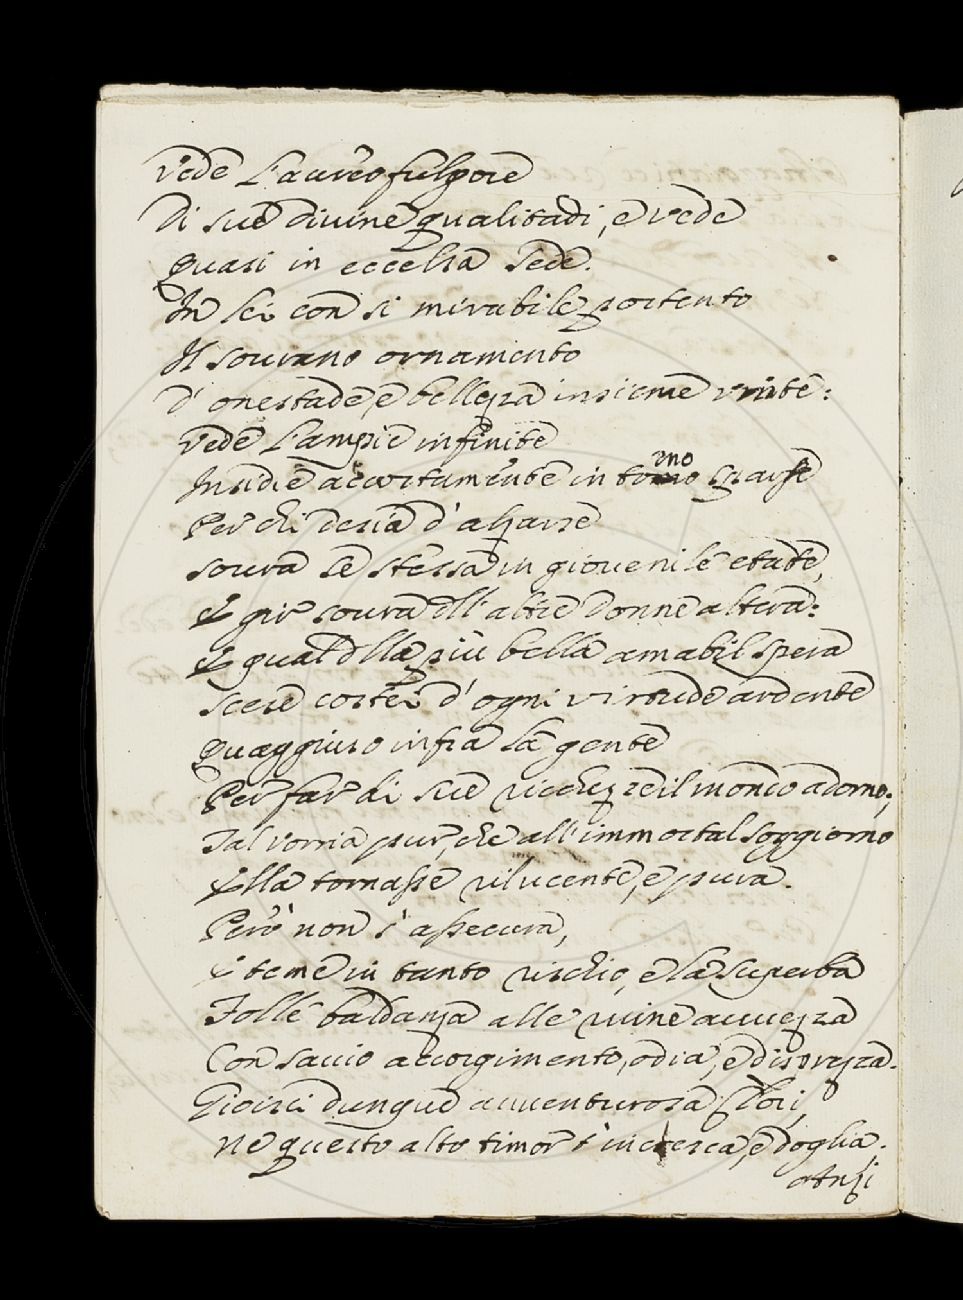 Vede l'aureo fulgore
Di sue divine qualitadi, e vede
Quasi in eccelsa sede.
In lei con si mirabile portento
Il sourano ornamento
D'onestade, e bellezza insieme unite:
Vede l'ampie infinite
Insidie accortamente intorno sparse
Per chi desia d'alzarse
Soura se stessa in giovenile etate,
E gir soura dll'altre donne altera:
E qual dlla più bella amabil spera
Scese costei d'ogni virtude ardente
Quaggiuso infra la gente
Per far di sue ricchezze il mondo adorno;
Tal vorria pur, che all'immortal soggiorno
Ella tornasse rilucente, e pura.
Però non s'assecura,
E teme in tanto rischio, e la superba
Folle baldanza alle ruine avvezza
Con saccio accorgimento, odia, e disprezza.
Gioisci dunque avventurosa Clori,
Ne questo alto timor t'incresca, e doglia.
Anzi